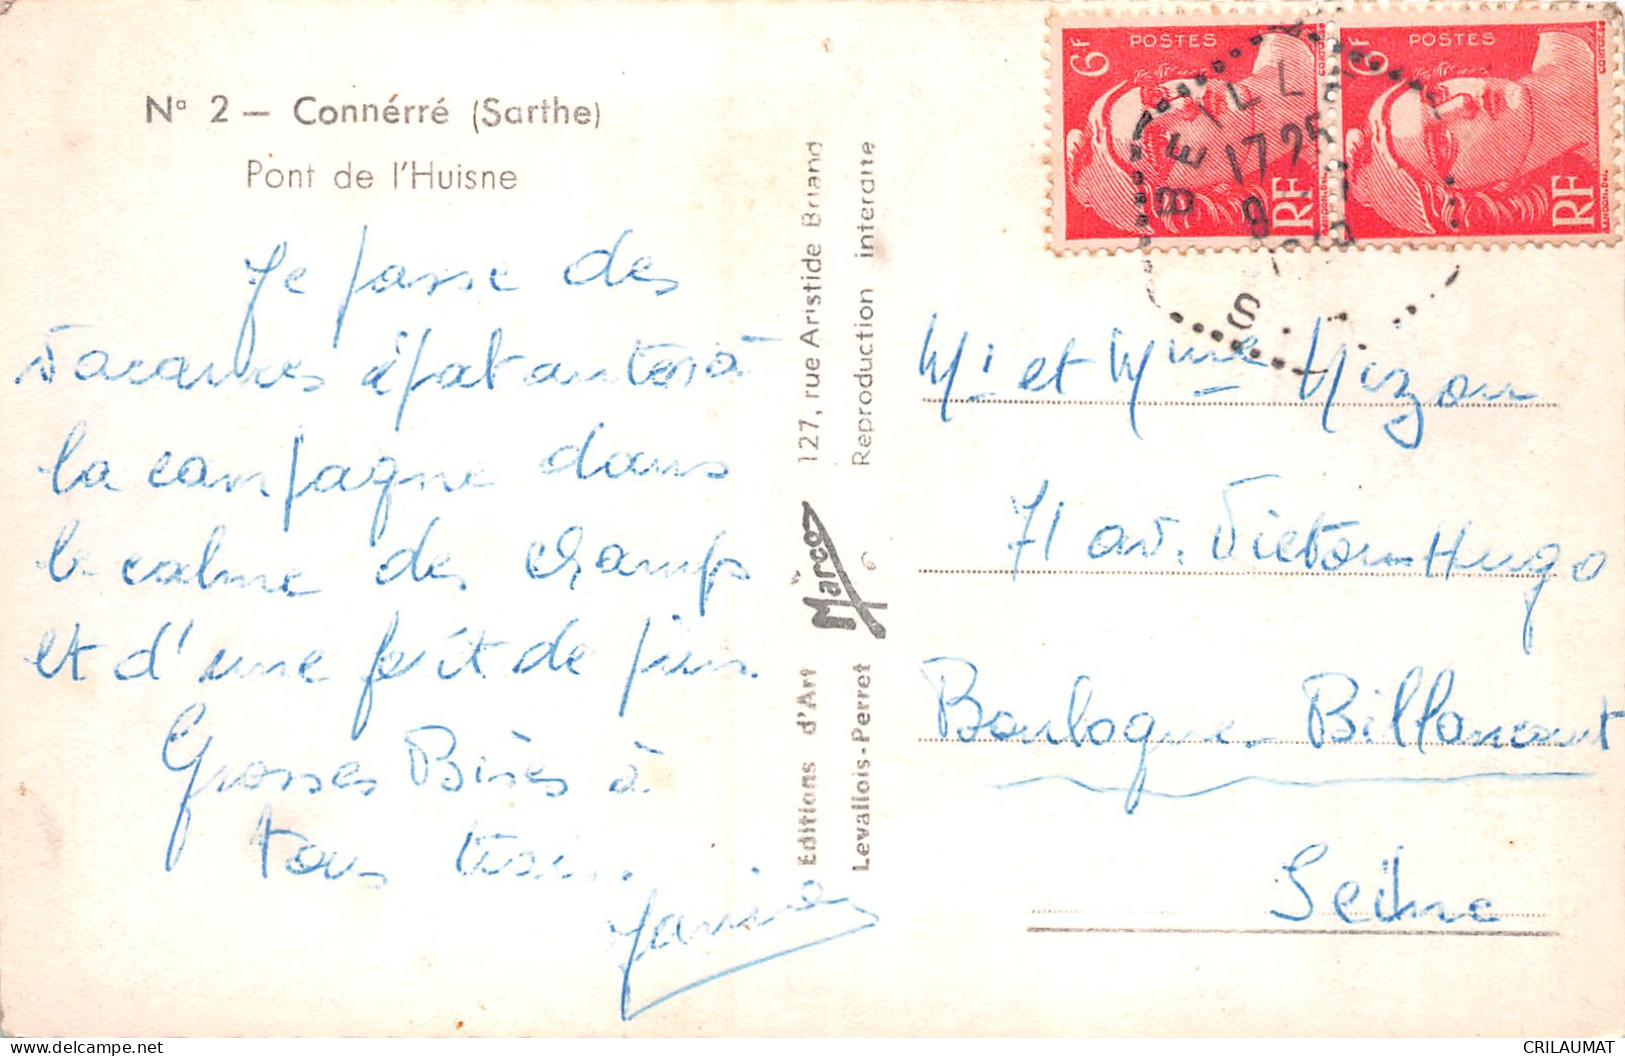 N° 2 — Connérré (Sarthe)
Pont de l'Huisne
Je passe des
vacances épatantes à
la campagne dans
le calme des champs
et d'une forêt de pins.
Grosses Bises à
tous trois.
Janine
Editions d'Art Marco 127, rue Aristide Briand
Levallois-Perret Reproduction interdite
6F POSTES RF
6F POSTES RF
BEILLE
17 25
8
S
Mr et Mme Nizou
71 av. Victor-Hugo
Boulogne-Billancourt
Seine
CRILAUMAT